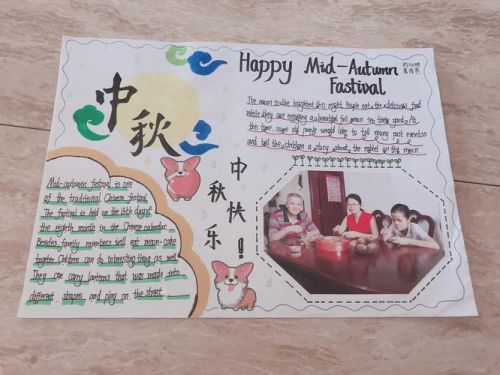 Happy Mid-Autumn
Fastival
中秋
The moon is the brightest this night. People eat the delicious food
while they are enjoying a beautiful full moon in their yard. At
this time, some old people would like to tell many past events
and tell the children a story about the rabbit on the moon.
中秋快乐!
Mid-autumn festival is one
of the traditional Chinese festival.
The festival is held on the 15th day of
the eighth month in the Chinese calendar.
Besides, family members will eat moon-cake
together. Children can do interesting thing as well.
They can carry lanterns that was made into
different shapes and play on the street.